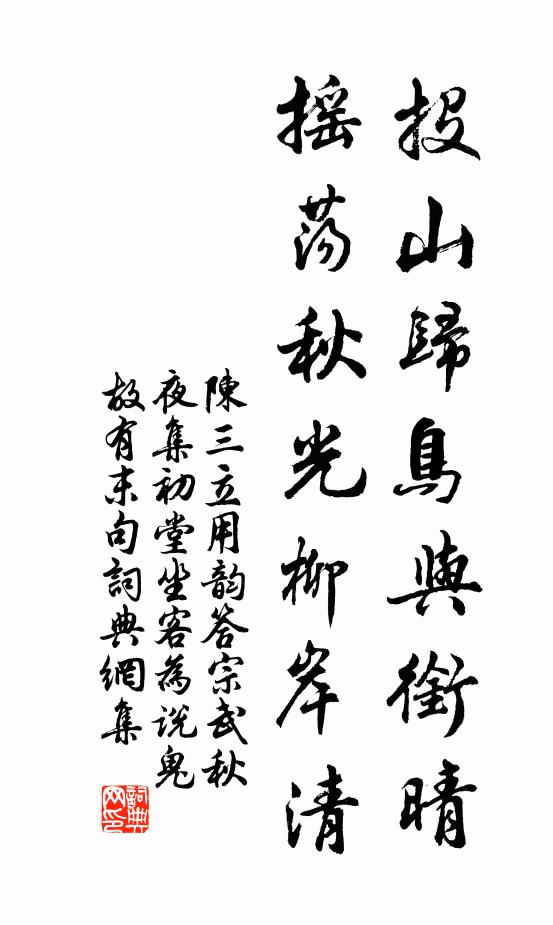 投山歸鳥與銜晴
摇荡秋光柳岸清
陳三立用韵答宗武秋
夜集初堂坐客為説鬼
故有末句詞典網集
詞典网印